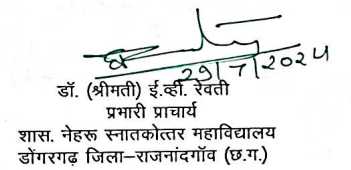 29/7/2024
डॉ. (श्रीमती) ई.व्ही. रेवती
प्रभारी प्राचार्य
शास. नेहरू स्नातकोत्तर महाविद्यालय
डोंगरगढ़ जिला–राजनांदगॉव (छ.ग.)